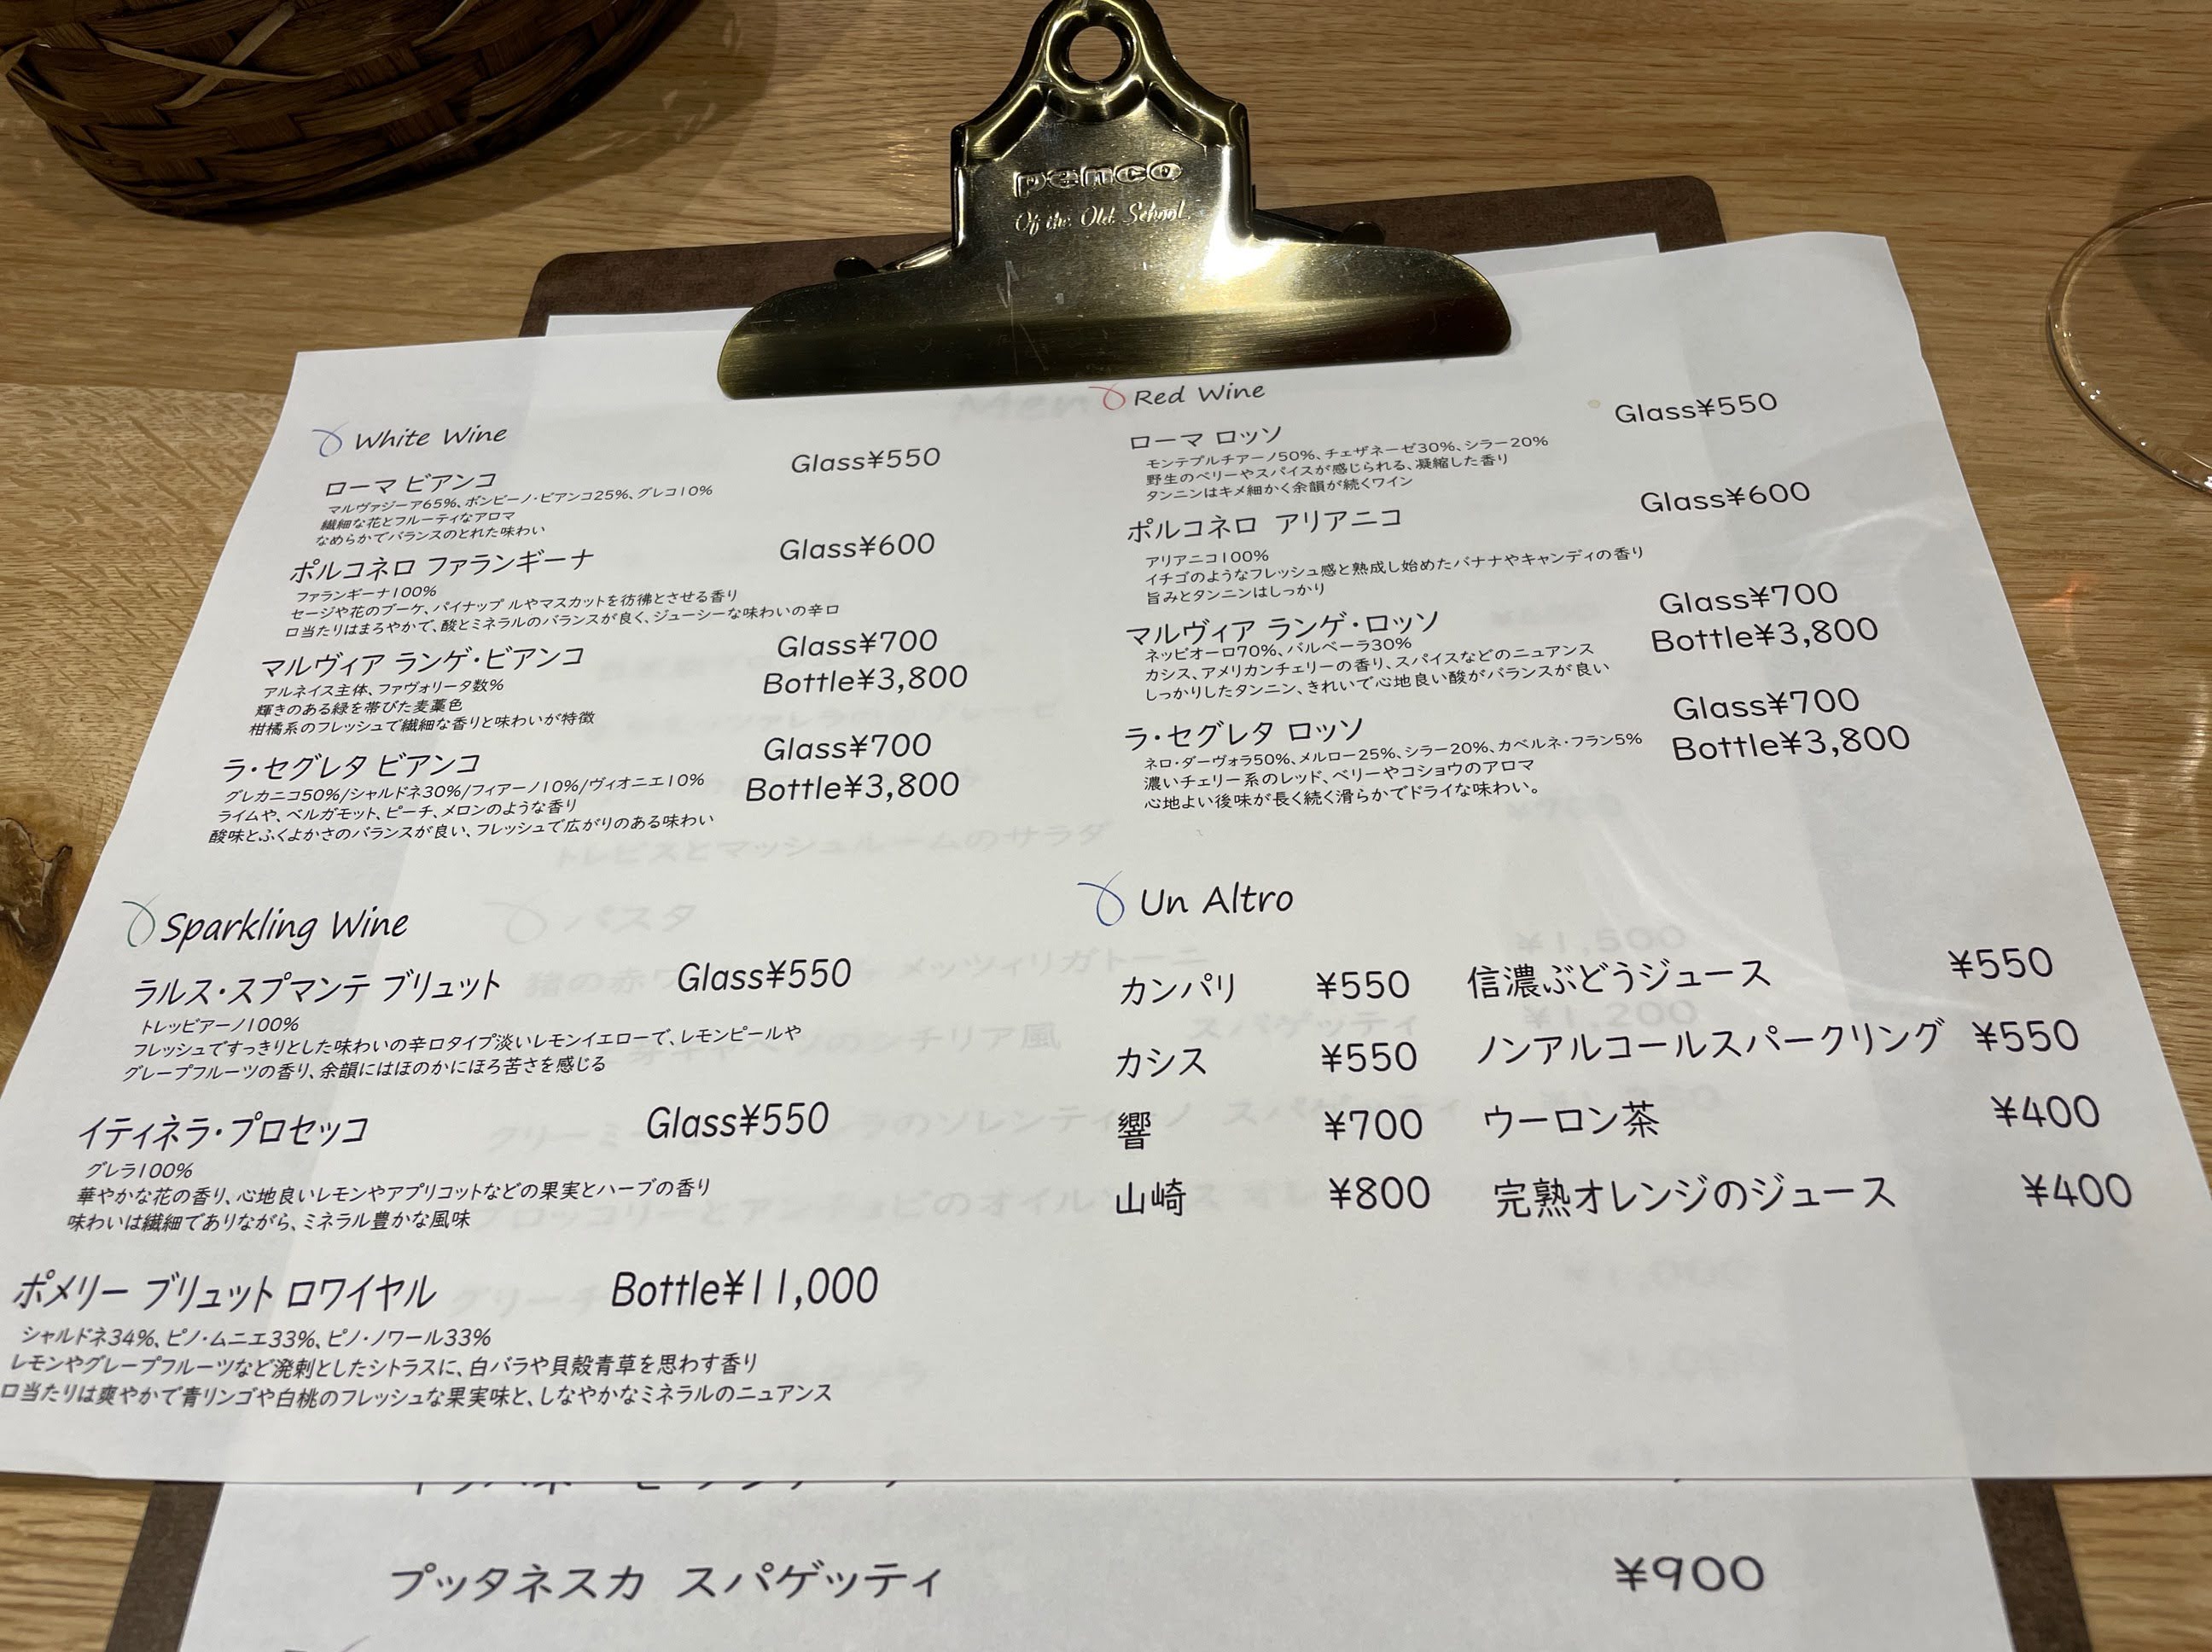 pemco
Of the Old School
White Wine
ローマ ビアンコ Glass¥550
マルヴァジーア65%、ボンビーノ・ビアンコ25%、グレコ10%
繊細な花とフルーティなアロマ
なめらかでバランスのとれた味わい
ポルコネロ ファランギーナ Glass¥600
ファランギーナ100%
セージや花のブーケ、パイナップルやマスカットを彷彿とさせる香り
口当たりはまろやかで、酸とミネラルのバランスが良く、ジューシーな味わいの辛口
マルヴィア ランゲ・ビアンコ Glass¥700
Bottle¥3,800
アルネイス主体、ファヴォリータ数%
輝きのある緑を帯びた麦藁色
柑橘系のフレッシュで繊細な香りと味わいが特徴
ラ・セグレタ ビアンコ Glass¥700
Bottle¥3,800
グレカニコ50%/シャルドネ30%/フィアーノ10%/ヴィオニエ10%
ライムや、ベルガモット、ピーチ、メロンのような香り
酸味とふくよかさのバランスが良い、フレッシュで広がりのある味わい
Red Wine
ローマ ロッソ Glass¥550
モンテプルチアーノ50%、チェザネーゼ30%、シラー20%
野生のベリーやスパイスが感じられる、凝縮した香り
タンニンはキメ細かく余韻が続くワイン
ポルコネロ アリアニコ Glass¥600
アリアニコ100%
イチゴのようなフレッシュ感と熟成し始めたバナナやキャンディの香り
旨みとタンニンはしっかり
マルヴィア ランゲ・ロッソ Glass¥700
Bottle¥3,800
ネッビオーロ70%、バルベーラ30%
カシス、アメリカンチェリーの香り、スパイスなどのニュアンス
しっかりしたタンニン、きれいで心地良い酸がバランスが良い
ラ・セグレタ ロッソ Glass¥700
Bottle¥3,800
ネロ・ダーヴォラ50%、メルロー25%、シラー20%、カベルネ・フラン5%
濃いチェリー系のレッド、ベリーやコショウのアロマ
心地よい後味が長く続く滑らかでドライな味わい。
Sparkling Wine
ラルス・スプマンテ ブリュット Glass¥550
トレッビアーノ100%
フレッシュですっきりとした味わいの辛口タイプ淡いレモンイエローで、レモンピールや
グレープフルーツの香り、余韻にはほのかにほろ苦さを感じる
イティネラ・プロセッコ Glass¥550
グレラ100%
華やかな花の香り、心地良いレモンやアプリコットなどの果実とハーブの香り
味わいは繊細でありながら、ミネラル豊かな風味
ポメリー ブリュット ロワイヤル Bottle¥11,000
シャルドネ34%、ピノ・ムニエ33%、ピノ・ノワール33%
レモンやグレープフルーツなど溌剌としたシトラスに、白バラや貝殻青草を思わす香り
口当たりは爽やかで青リンゴや白桃のフレッシュな果実味と、しなやかなミネラルのニュアンス
Un Altro
カンパリ ¥550 信濃ぶどうジュース ¥550
カシス ¥550 ノンアルコールスパークリング ¥550
響 ¥700 ウーロン茶 ¥400
山崎 ¥800 完熟オレンジのジュース ¥400
プッタネスカ スパゲッティ ¥900